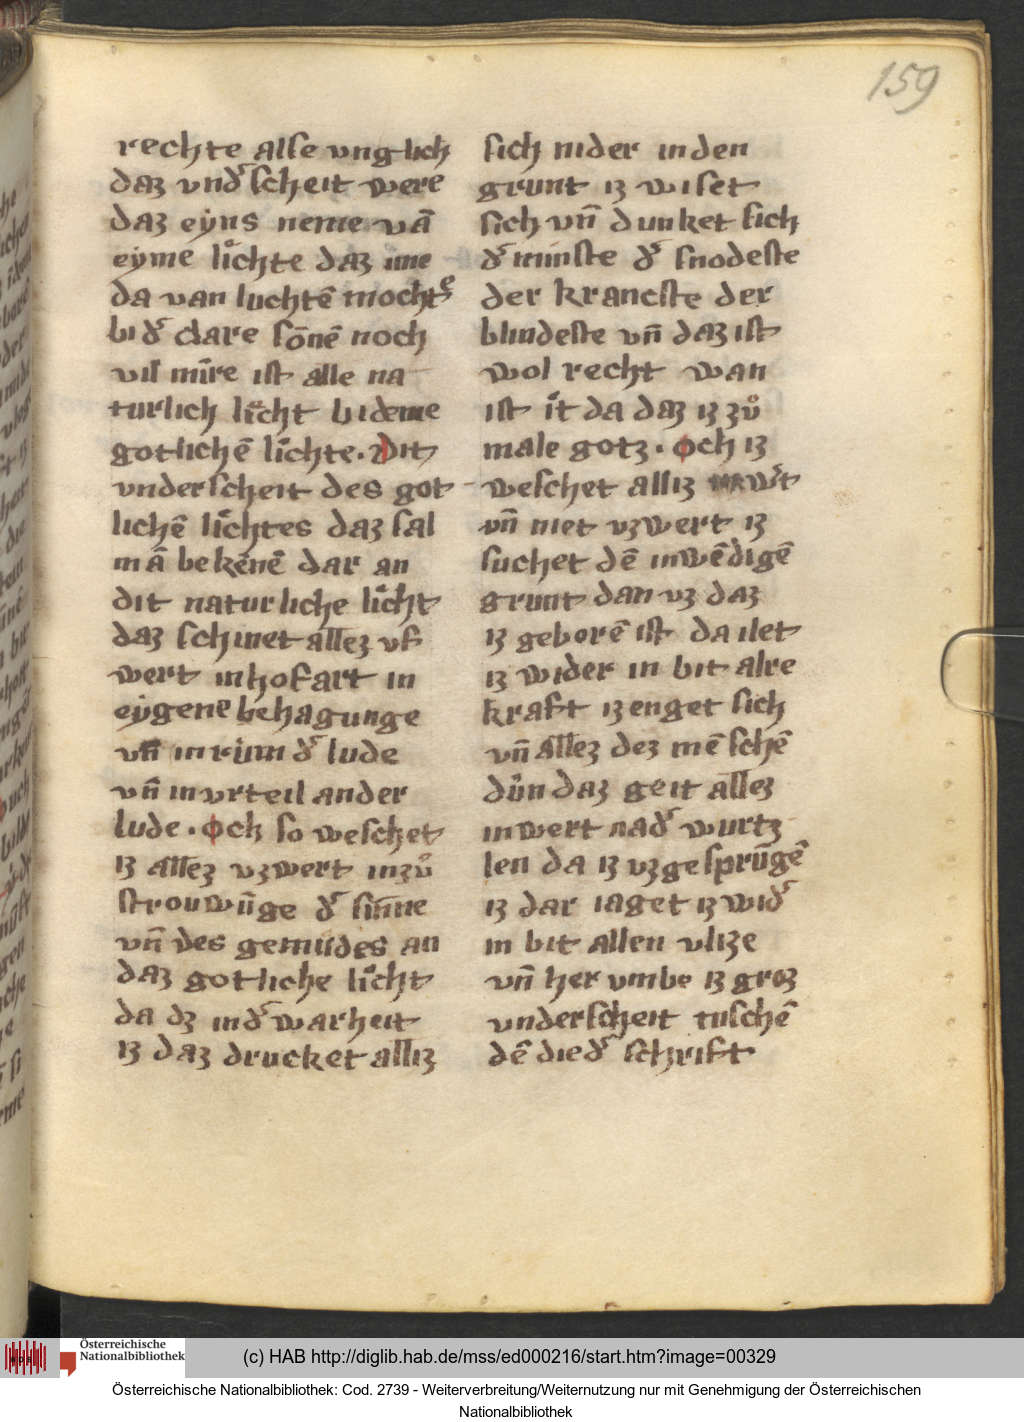 159
rechte alse vnglich
daz vnd͛ scheit were
daz eẏns neme vā
eẏme lîchte daz ime
da van luchtē mochtͤ
bi d͛ clare sōnē noch
vil mīre ist alle na
turlich lîcht bi deme
gotlichē lîchte. Dit
vnderscheit des got
lichē lîchtes daz sal
mā bekēnē dar an
dit naturliche lîcht
daz schinet allez vs
wert in hofart in
eẏgene behagunge
vn̄ in rům d͛ lude
vn̄ in vrteil ander
lude. Och so weschet
iz allez vzwert in zů
strouwūge d͛ sinne
vn̄ des gemudes an
daz gotliche lîcht
da dz in d͛ warheit
iz daz drucket alliz
sich nider in den
grunt iz wiset
sich vn̄ dunket sich
d͛ minste d͛ snodeste
der krancste der
blindeste vn̄ daz ist
wol recht wan
ist ît da daz iz zů
male gotz. Och iz
weschet alliz inw͛t
vn̄ niet vzwert iz
suchet dē inwēdigē
grunt dan vz daz
iz geborē ist da ilet
iz wider in bit alre
kraft iz enget sich
vn̄ allez dez mēschē
důn daz geit allez
inwert nad͛ wurtz
len da iz vzgesprūgē
iz dar iaget iz wid͛
in bit allen vlize
vn̄ her vmbe iz groz
vnderscheit tuschē
dē die d͛ schrift
Österreichische
Nationalbibliothek
(c) HAB http://diglib.hab.de/mss/ed000216/start.htm?image=00329
Österreichische Nationalbibliothek: Cod. 2739 - Weiterverbreitung/Weiternutzung nur mit Genehmigung der Österreichischen
Nationalbibliothek